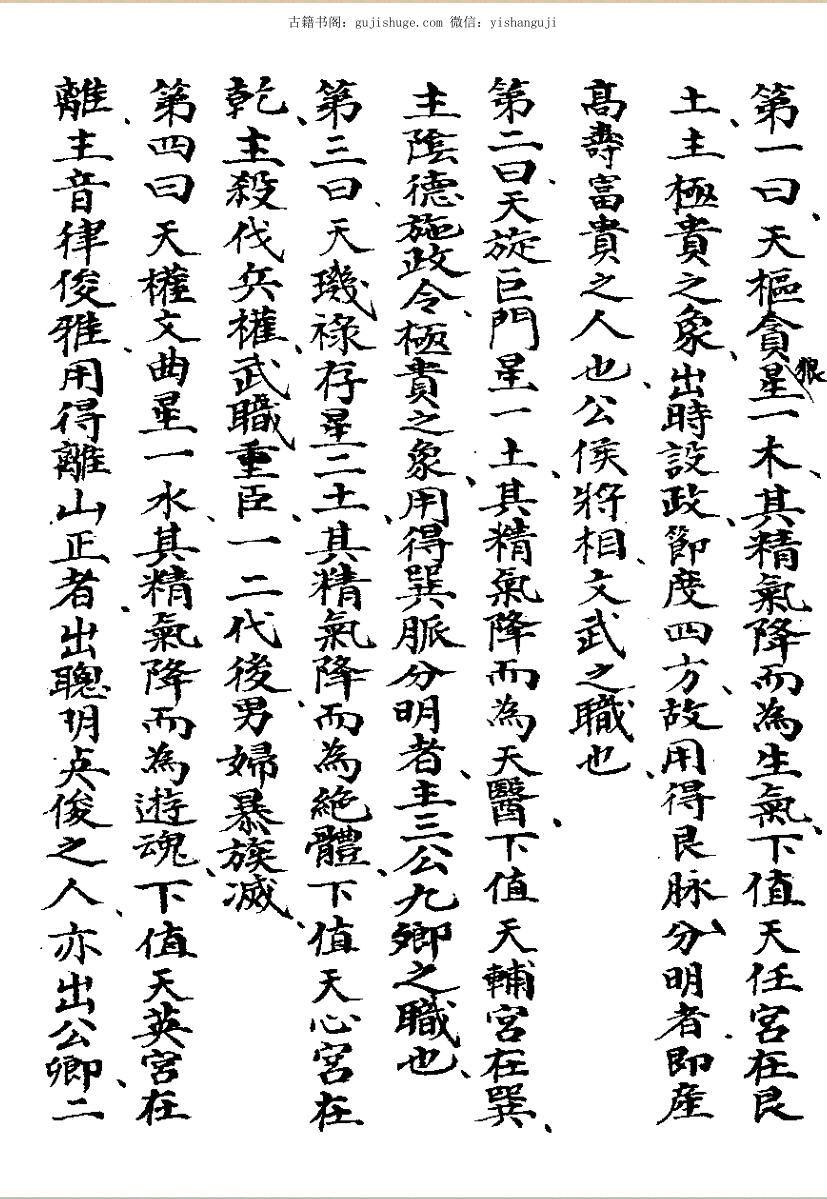 古籍书阁：gujishuge.com 微信：yishanguji
第一曰、天樞貪狼星一木、其精氣降而為生氣、下值天任宮在艮
土、主極貴之象、出時設政、節度四方、故用得艮脉分、明者即產
高壽富貴之人也、公侯將相、文武之職也、
第二曰、天旋巨門星一土、其精氣降而為天醫、下值天輔宮在巽、
主陰德施政令、極貴之象、用得巽脈分明者、主三公九卿之職也、
第三曰、天璣祿存星二土、其精氣降而為絶體、下值天心宮在
乾、主殺伐兵權、武職重臣、一二代後、男婦暴族滅、
第四曰天權文曲星一水、其精氣降而為遊魂、下值天英宮在
離、主音律俊雅、用得離山正者、出聰明英俊之人、亦出公卿、二